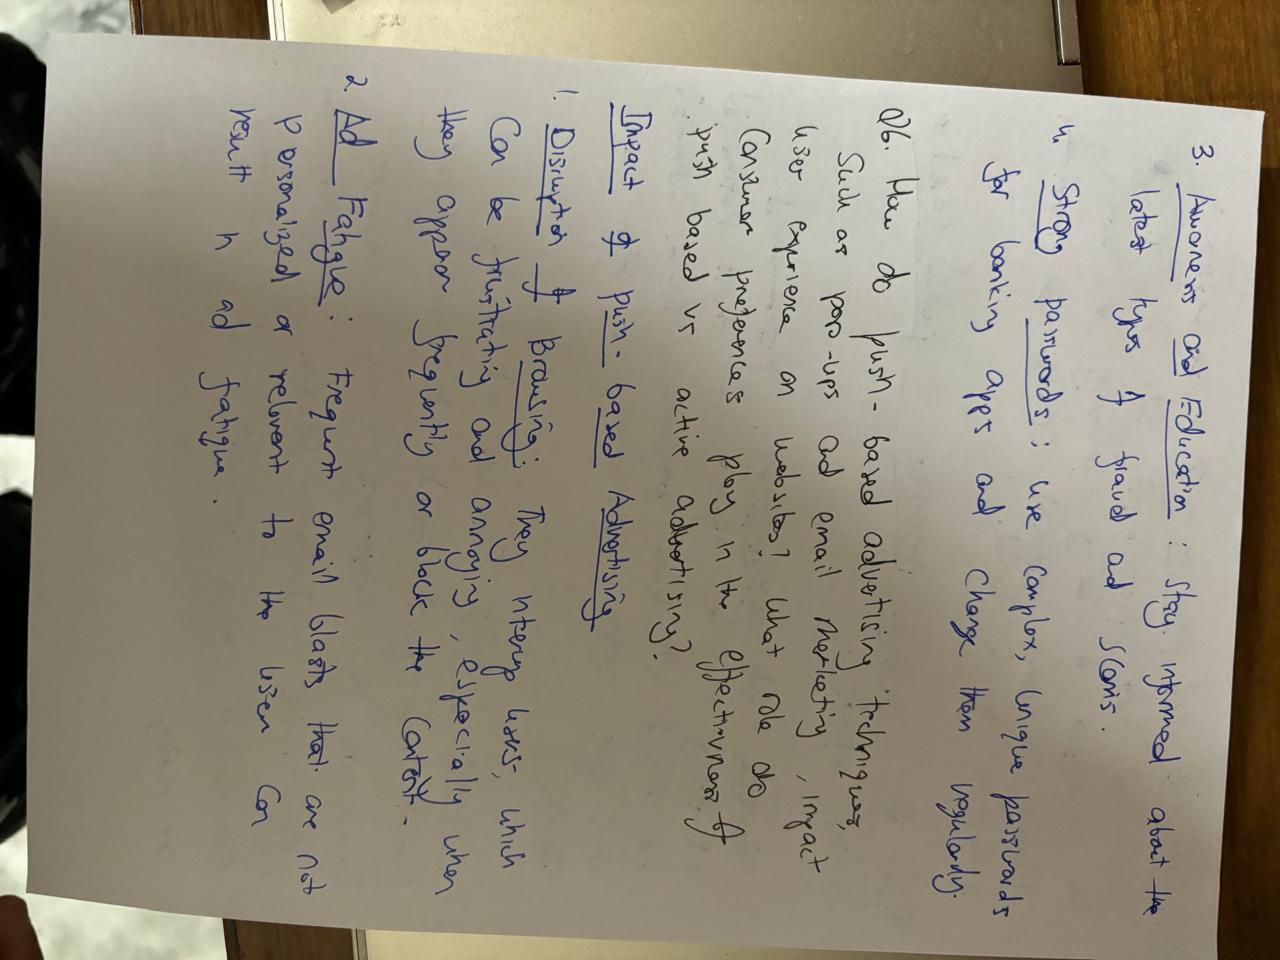 3. Awareness and Education : Stay informed about the
latest types of fraud and scams.
4. Strong passwords : use complex, unique passwords
for banking apps and change them regularly.
Q6. How do push-based advertising techniques,
Such as pop-ups and email marketing, impact
user experience on websites? What role do
Consumer preferences play in the effectivness of
push based vs active advertising?
Impact of push-based Advertising
1. Disruption of Browsing: They interup users, which
Can be frustrating and annoying, especially when
they appear frequently or block the content.
2. Ad Fatigue : Frequent email blasts that are not
personalized or relevent to the user can
result in ad fatigue.